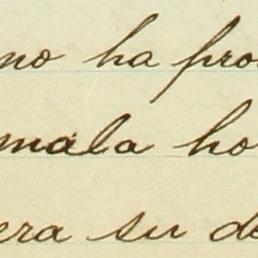 no ha pro
mala ho
era su de